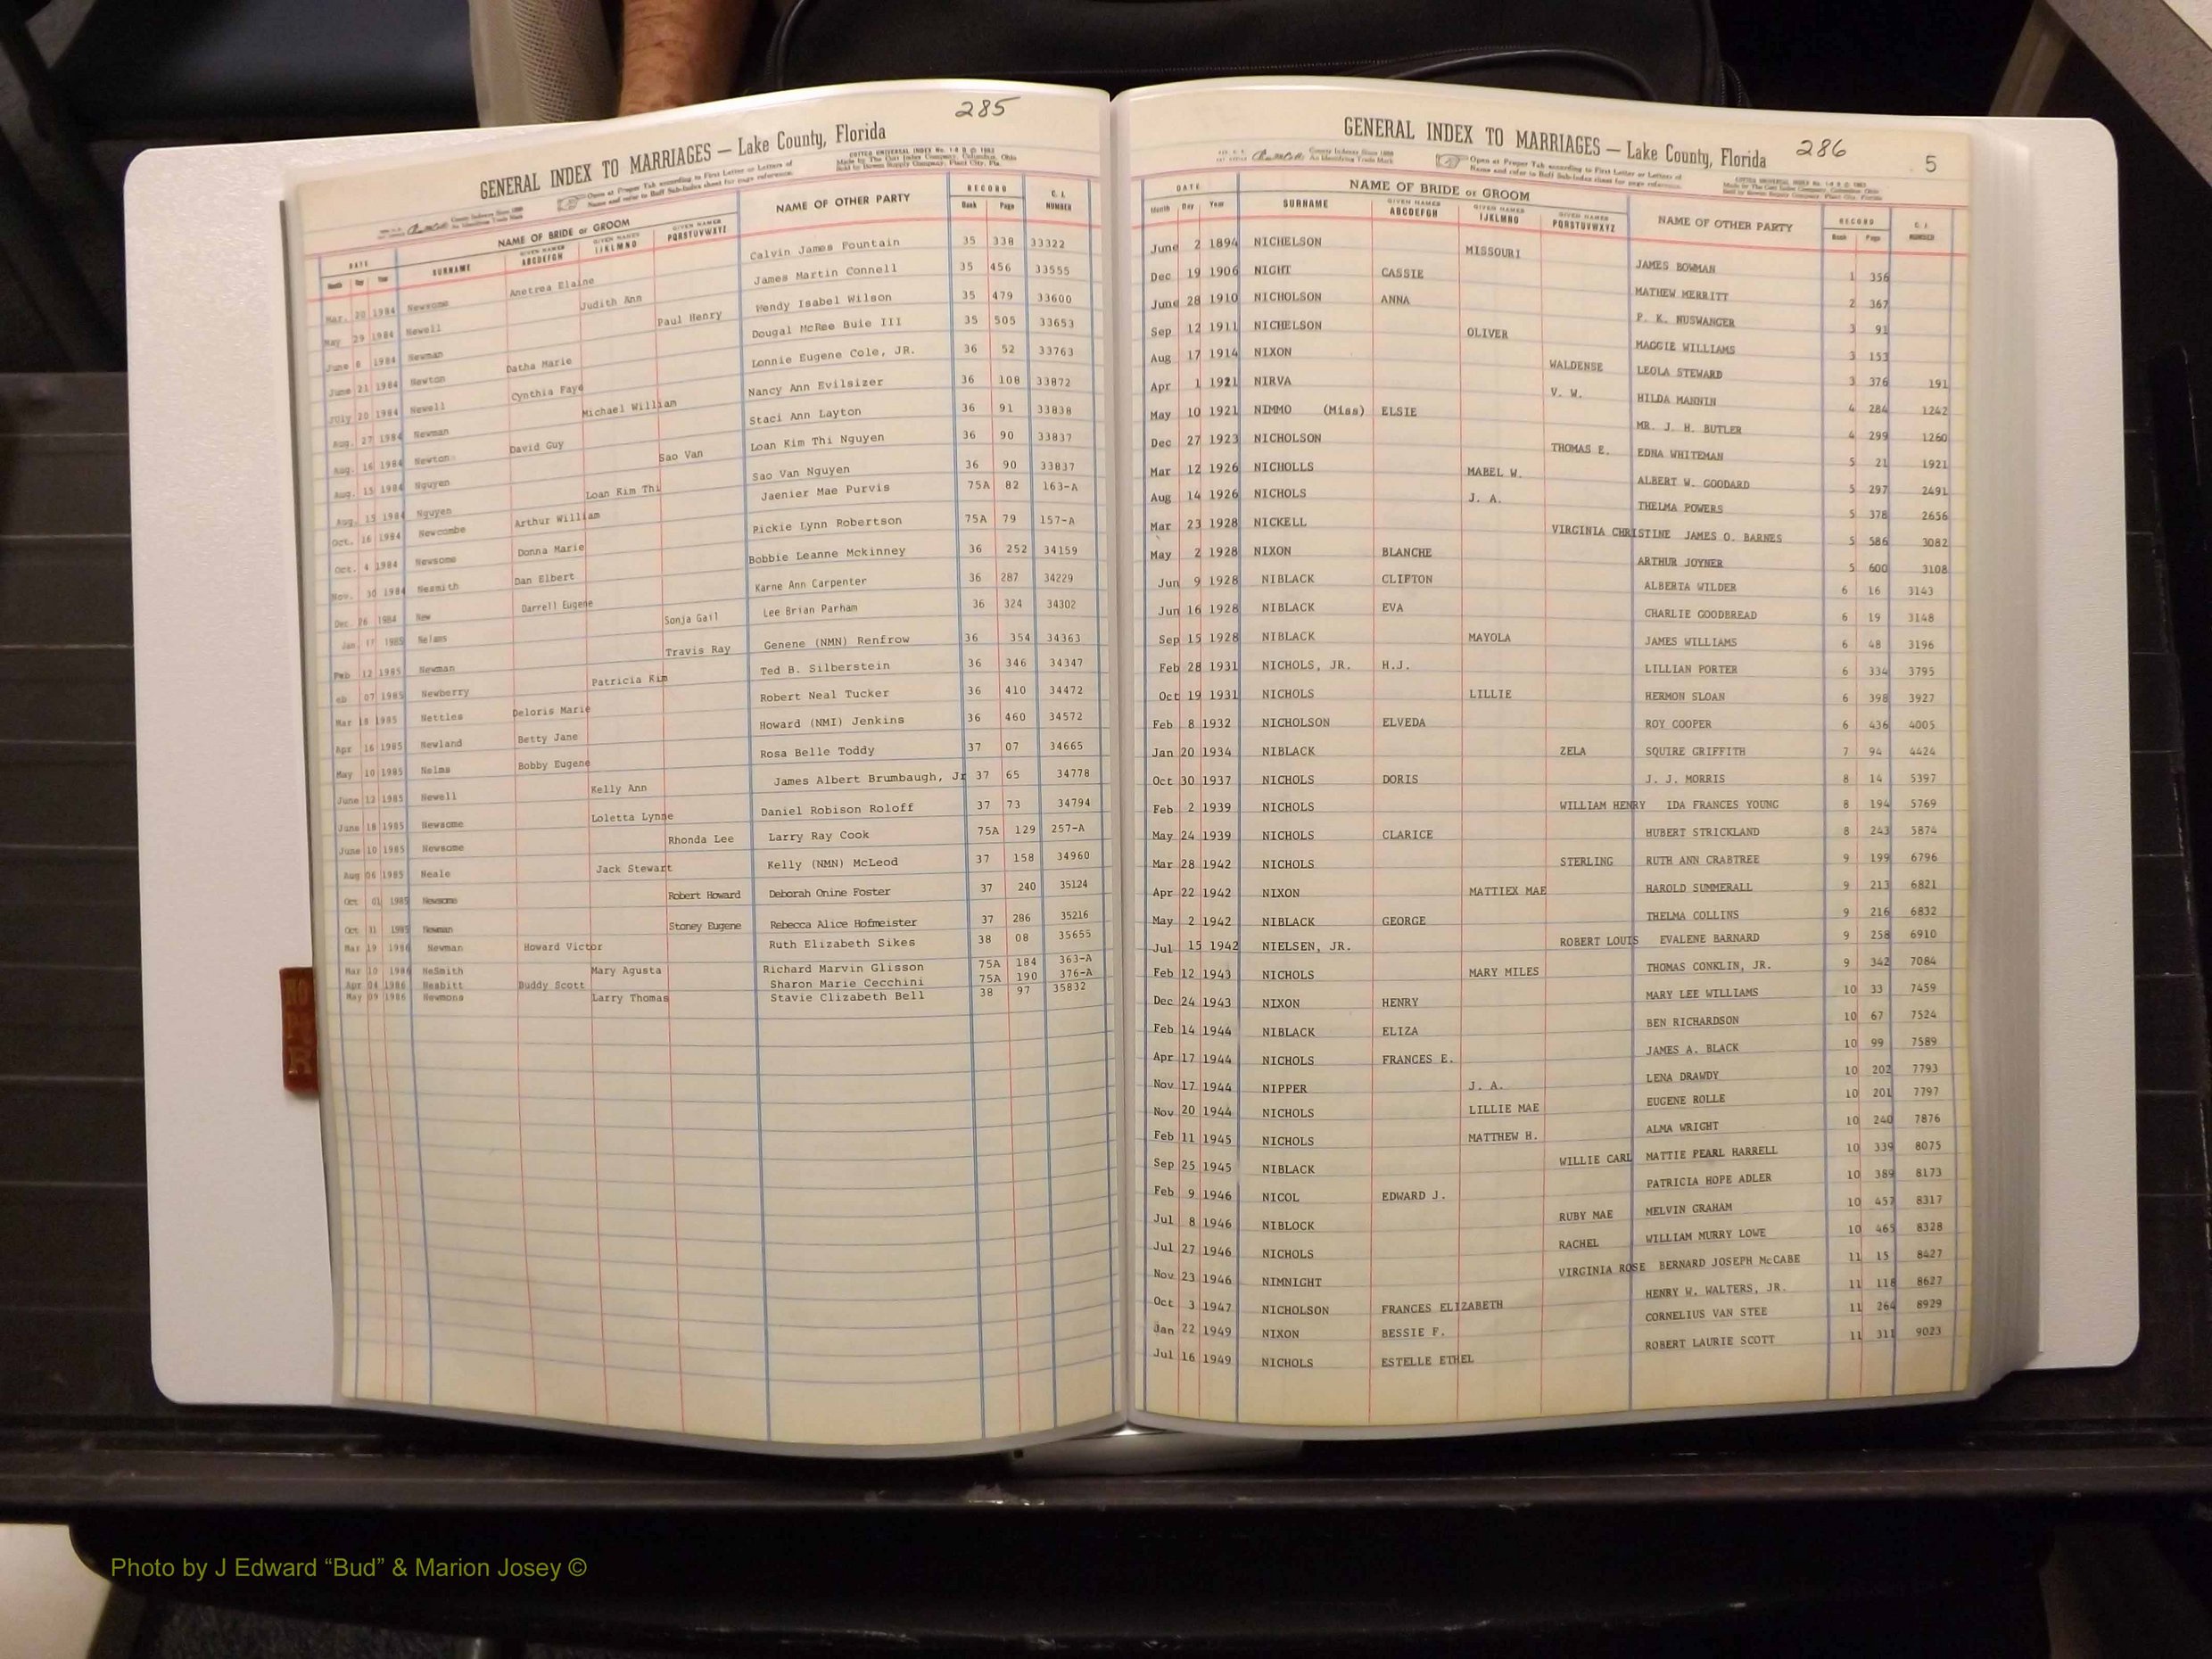 285
GENERAL INDEX TO MARRIAGES — Lake County, Florida
Open at Proper Tab according to First Letter or Letters of
Name and refer to Buff Sub-Index sheet for page reference.
COTT'S UNIVERSAL INDEX
Made by The Cott Index Company, Columbus, Ohio
Sold by Dowen Supply Company, Plant City, Fla.
DATE NAME OF BRIDE or GROOM NAME OF OTHER PARTY RECORD C. I.
Month Day Year SURNAME GIVEN NAMES ABCDEFGH GIVEN NAMES IJKLMNO GIVEN NAMES PQRSTUVWXYZ Book Page NUMBER
Mar. 20 1984 Newsome Anetrea Elaine Calvin James Fountain 35 338 33322
May 29 1984 Newell Judith Ann James Martin Connell 35 456 33555
June 8 1984 Newman Paul Henry Wendy Isabel Wilson 35 479 33600
June 21 1984 Newton Datha Marie Dougal McRee Buie III 35 505 33653
July 20 1984 Newell Cynthia Faye Lonnie Eugene Cole, JR. 36 52 33763
Aug. 27 1984 Newman Michael William Nancy Ann Evilsizer 36 108 33872
Aug. 16 1984 Newton David Guy Staci Ann Layton 36 91 33838
Aug. 15 1984 Nguyen Sao Van Loan Kim Thi Nguyen 36 90 33837
Aug. 15 1984 Nguyen Loan Kim Thi Sao Van Nguyen 36 90 33837
Oct. 16 1984 Newcombe Arthur William Jaenier Mae Purvis 75A 82 163-A
Oct. 4 1984 Newsome Donna Marie Pickie Lynn Robertson 75A 79 157-A
Nov. 30 1984 Nesmith Dan Elbert Bobbie Leanne Mckinney 36 252 34159
Dec 26 1984 New Darrell Eugene Karne Ann Carpenter 36 287 34229
Jan 17 1985 Nelans Sonja Gail Lee Brian Parham 36 324 34302
Feb 12 1985 Newman Travis Ray Genene (NMN) Renfrow 36 354 34363
eb 07 1985 Newberry Patricia Kim Ted B. Silberstein 36 346 34347
Mar 18 1985 Nettles Deloris Marie Robert Neal Tucker 36 410 34472
Apr 16 1985 Newland Betty Jane Howard (NMI) Jenkins 36 460 34572
May 10 1985 Nelms Bobby Eugene Rosa Belle Toddy 37 07 34665
June 12 1985 Newell Kelly Ann James Albert Brumbaugh, Jr 37 65 34778
June 18 1985 Newsome Loletta Lynne Daniel Robison Roloff 37 73 34794
June 10 1985 Newsome Rhonda Lee Larry Ray Cook 75A 129 257-A
Aug 06 1985 Neale Jack Stewart Kelly (NMN) McLeod 37 158 34960
Oct 01 1985 Newsome Robert Howard Deborah Onine Foster 37 240 35124
Oct 31 1985 Newman Stoney Eugene Rebecca Alice Hofmeister 37 286 35216
Mar 19 1986 Newman Howard Victor Ruth Elizabeth Sikes 38 08 35655
Mar 10 1986 NeSmith Mary Agusta Richard Marvin Glisson 75A 184 363-A
Apr 04 1986 Nesbitt Buddy Scott Sharon Marie Cecchini 75A 190 376-A
May 09 1986 Newmons Larry Thomas Stavie Clizabeth Bell 38 97 35832
286
5
GENERAL INDEX TO MARRIAGES — Lake County, Florida
County Indexes Since 1888
An Identifying Trade Mark
Open at Proper Tab according to First Letter or Letters of
Name and refer to Buff Sub-Index sheet for page reference.
DATE NAME OF BRIDE or GROOM NAME OF OTHER PARTY RECORD C. I.
Month Day Year SURNAME GIVEN NAMES ABCDEFGH GIVEN NAMES IJKLMNO GIVEN NAMES PQRSTUVWXYZ Book Page NUMBER
June 2 1894 NICHELSON MISSOURI JAMES BOWMAN 1 356
Dec 19 1906 NIGHT CASSIE MATHEW MERRITT 2 367
June 28 1910 NICHOLSON ANNA P. K. NUSWANGER 3 91
Sep 12 1911 NICHELSON OLIVER MAGGIE WILLIAMS 3 153
Aug 17 1914 NIXON WALDENSE LEOLA STEWARD 3 376 191
Apr 1 1921 NIRVA V. W. HILDA MANNIN 4 284 1242
May 10 1921 NIMMO (Miss) ELSIE MR. J. H. BUTLER 4 299 1260
Dec 27 1923 NICHOLSON THOMAS E. EDNA WHITEMAN 5 21 1921
Mar 12 1926 NICHOLLS MABEL W. ALBERT W. GODARD 5 297 2491
Aug 14 1926 NICHOLS J. A. THELMA POWERS 5 378 2656
Mar 23 1928 NICKELL VIRGINIA CHRISTINE JAMES O. BARNES 5 586 3082
May 2 1928 NIXON BLANCHE ARTHUR JOYNER 5 600 3108
Jun 9 1928 NIBLACK CLIFTON ALBERTA WILDER 6 16 3143
Jun 16 1928 NIBLACK EVA CHARLIE GOODBREAD 6 19 3148
Sep 15 1928 NIBLACK MAYOLA JAMES WILLIAMS 6 48 3196
Feb 28 1931 NICHOLS, JR. H.J. LILLIAN PORTER 6 334 3795
Oct 19 1931 NICHOLS LILLIE HERMON SLOAN 6 398 3927
Feb 8 1932 NICHOLSON ELVEDA ROY COOPER 6 436 4005
Jan 20 1934 NIBLACK ZELA SQUIRE GRIFFITH 7 94 4424
Oct 30 1937 NICHOLS DORIS J. J. MORRIS 8 14 5397
Feb 2 1939 NICHOLS WILLIAM HENRY IDA FRANCES YOUNG 8 194 5769
May 24 1939 NICHOLS CLARICE HUBERT STRICKLAND 8 243 5874
Mar 28 1942 NICHOLS STERLING RUTH ANN CRABTREE 9 199 6796
Apr 22 1942 NIXON MATTIEX MAE HAROLD SUMMERALL 9 213 6821
May 2 1942 NIBLACK GEORGE THELMA COLLINS 9 216 6832
Jul 15 1942 NIELSEN, JR. ROBERT LOUIS EVALENE BARNARD 9 258 6910
Feb 12 1943 NICHOLS MARY MILES THOMAS CONKLIN, JR. 9 342 7084
Dec 24 1943 NIXON HENRY MARY LEE WILLIAMS 10 33 7459
Feb 14 1944 NIBLACK ELIZA BEN RICHARDSON 10 67 7524
Apr 17 1944 NICHOLS FRANCES E. JAMES A. BLACK 10 99 7589
Nov 17 1944 NIPPER J. A. LENA DRAWDY 10 202 7793
Nov 20 1944 NICHOLS LILLIE MAE EUGENE ROLLE 10 201 7797
Feb 11 1945 NICHOLS MATTHEW H. ALMA WRIGHT 10 240 7876
Sep 25 1945 NIBLACK WILLIE CARL MATTIE PEARL HARRELL 10 339 8075
Feb 9 1946 NICOL EDWARD J. PATRICIA HOPE ADLER 10 389 8173
Jul 8 1946 NIBLOCK RUBY MAE MELVIN GRAHAM 10 457 8317
Jul 27 1946 NICHOLS RACHEL WILLIAM MURRY LOWE 10 465 8328
Nov 23 1946 NIMNIGHT VIRGINIA ROSE BERNARD JOSEPH McCABE 11 15 8427
Oct 3 1947 NICHOLSON FRANCES ELIZABETH HENRY W. WALTERS, JR. 11 118 8627
Jan 22 1949 NIXON BESSIE F. CORNELIUS VAN STEE 11 264 8929
Jul 16 1949 NICHOLS ESTELLE ETHEL ROBERT LAURIE SCOTT 11 311 9023
Photo by J Edward “Bud” & Marion Josey ©